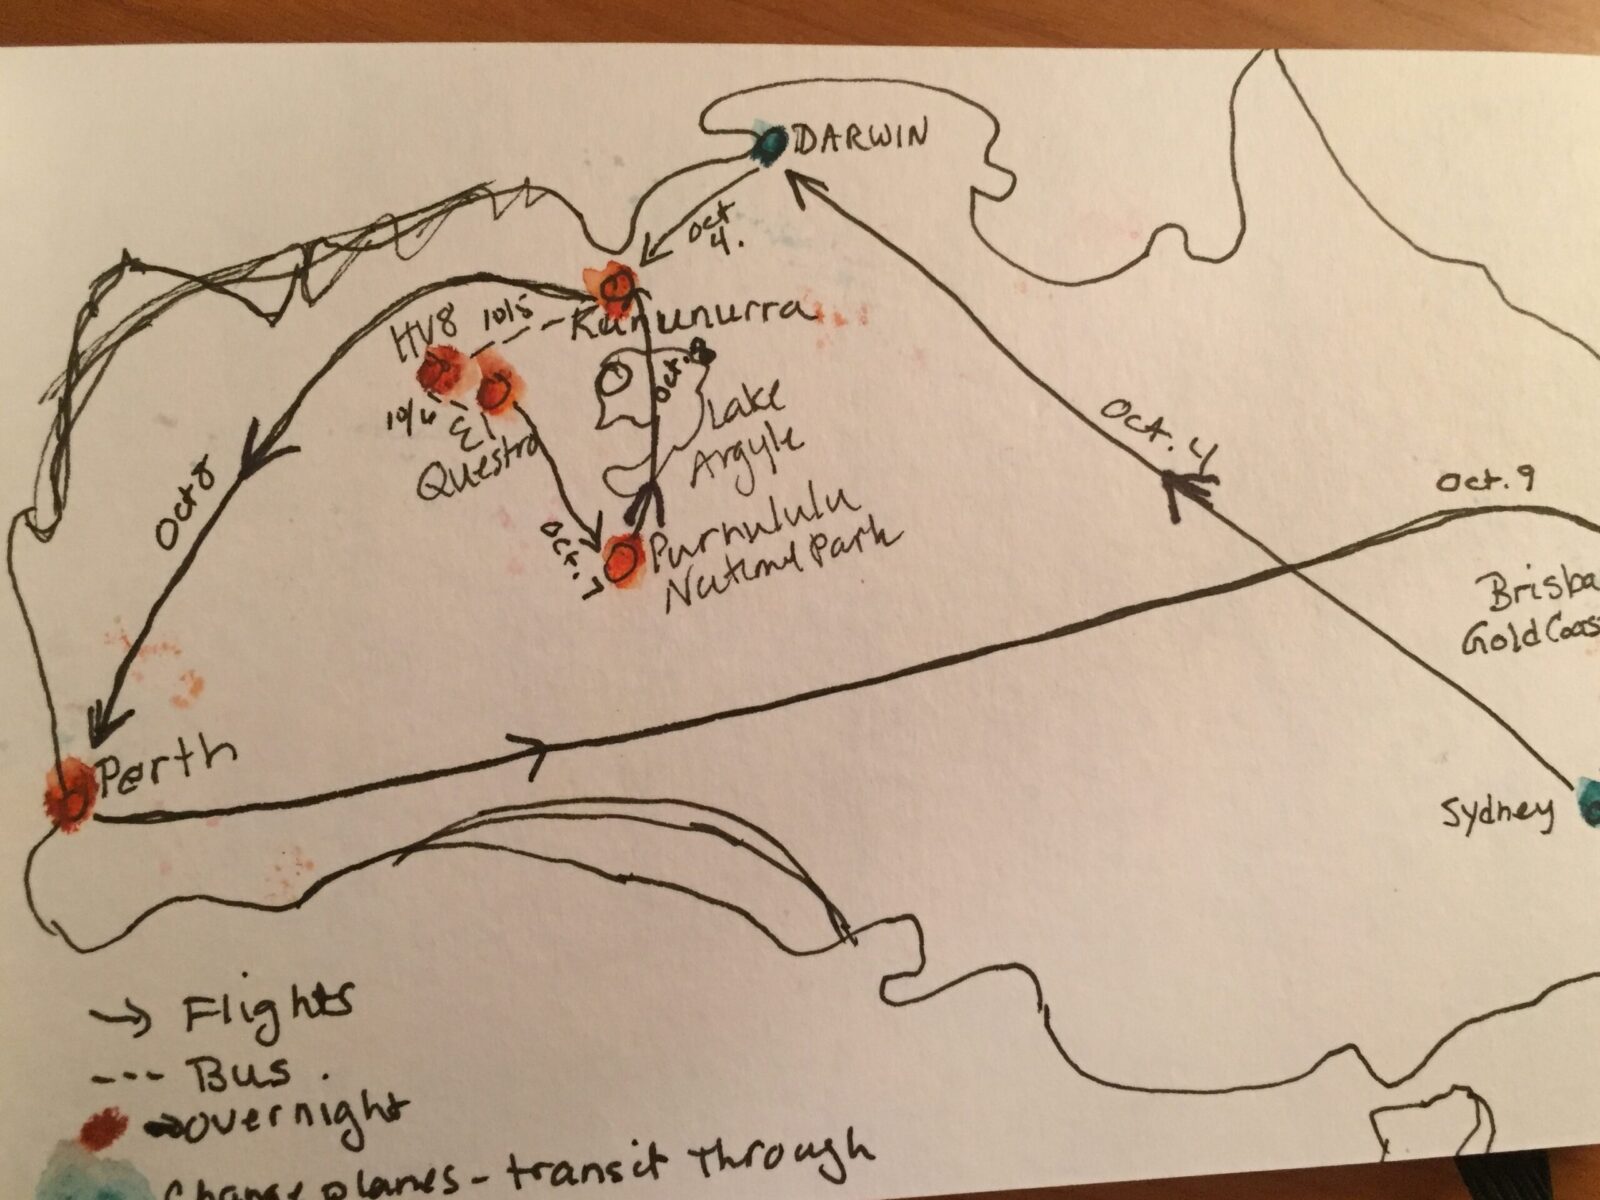 DARWIN
Oct
4.
Kununurra
HV8
10/5
10/6
El
Questro
Lake
Argyle
Oct. 4
Oct. 9
Oct 8
Oct. 7
Purnululu
National Park
Brisba
Gold Coas
Perth
Sydney
Flights
--- Bus.
overnight
Change planes - transit through